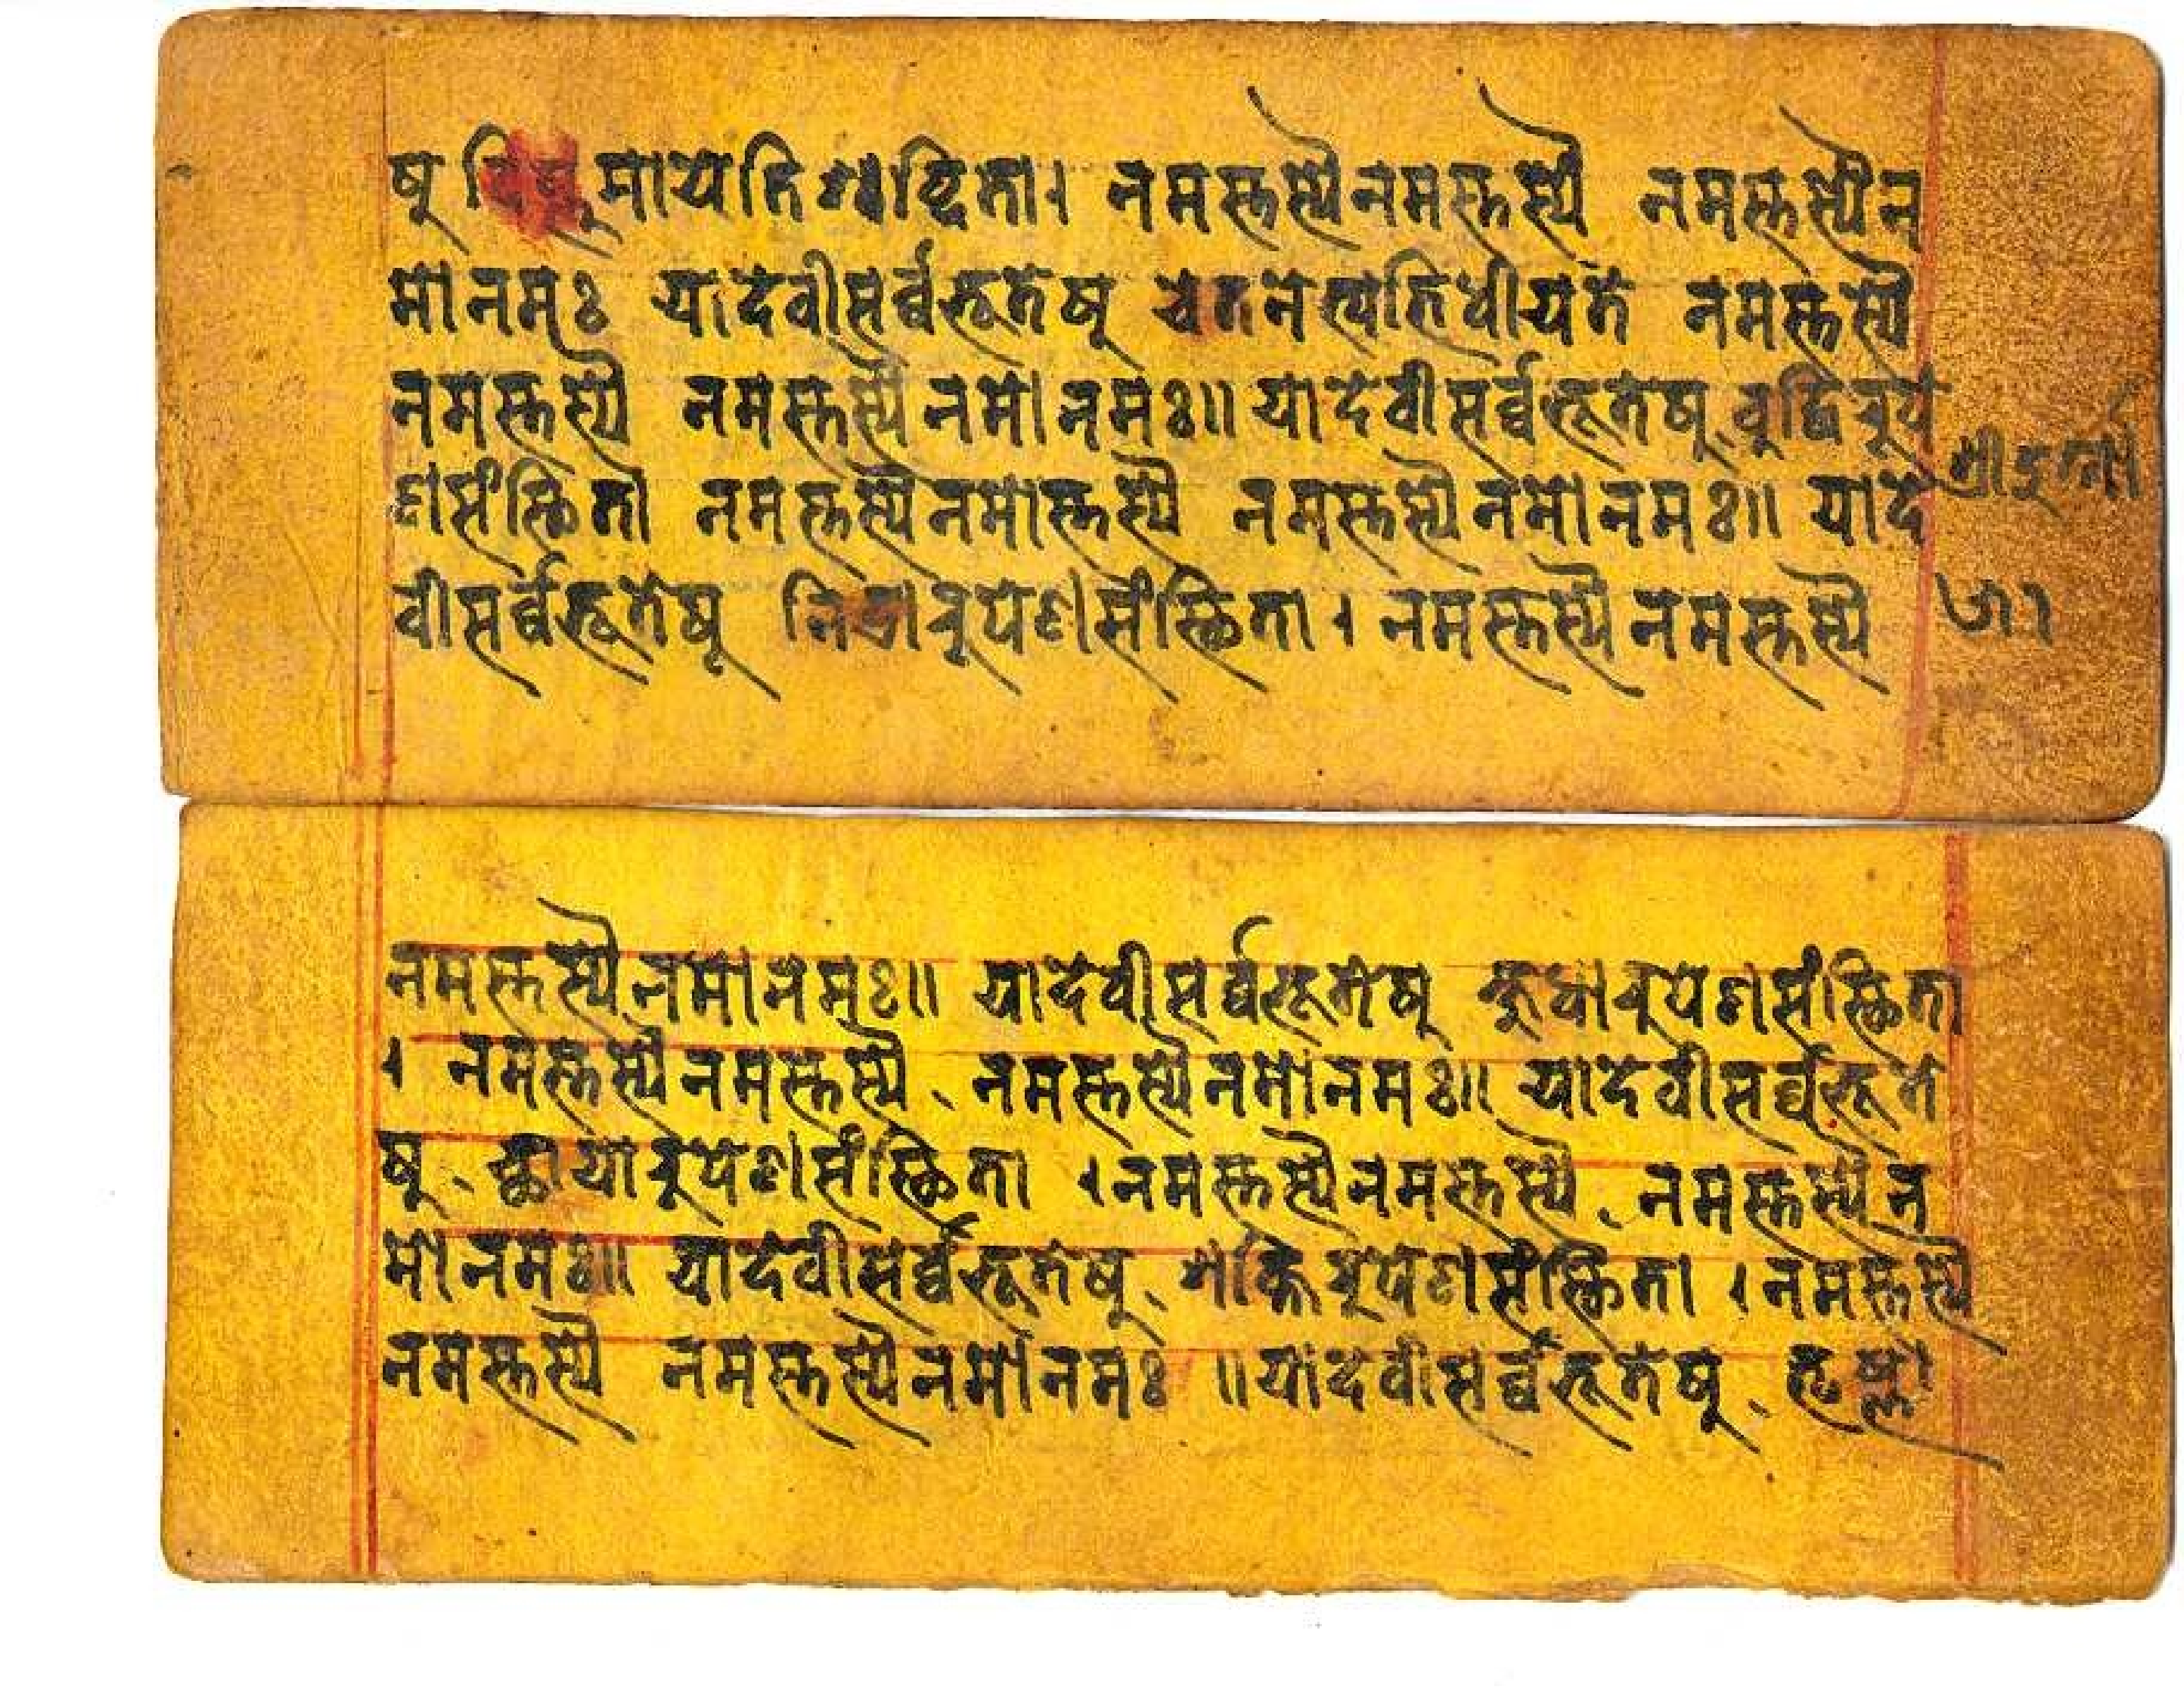 षु विष्णुमायेति शब्दिता। नमस्तस्यै नमस्तस्यै नमस्तस्यै न
मो नमः यादेवीसर्व्वभूतेषु चेतनेत्यभिधीयते नमस्तस्यै
नमस्तस्यै नमस्तस्यै नमो नमः॥ यादेवीसर्व्वभूतेषु बुद्धिरूपे
णसंस्थिता नमस्तस्यै नमस्तस्यै नमस्तस्यै नमो नमः॥ यादे
वीसर्व्वभूतेषु निद्रारूपेणसंस्थिता। नमस्तस्यै नमस्तस्यै
श्रीदुर्गा
नमस्तस्यै नमो नमः॥ यादेवीसर्व्वभूतेषु क्षुधारूपेणसंस्थिता
। नमस्तस्यै नमस्तस्यै नमस्तस्यै नमो नमः॥ यादेवीसर्व्वभूते
षु छायारूपेणसंस्थिता । नमस्तस्यै नमस्तस्यै नमस्तस्यै न
मो नमः॥ यादेवीसर्व्वभूतेषु शक्तिरूपेणसंस्थिता । नमस्तस्यै
नमस्तस्यै नमस्तस्यै नमो नमः ॥ यादेवीसर्व्वभूतेषु तृष्णा